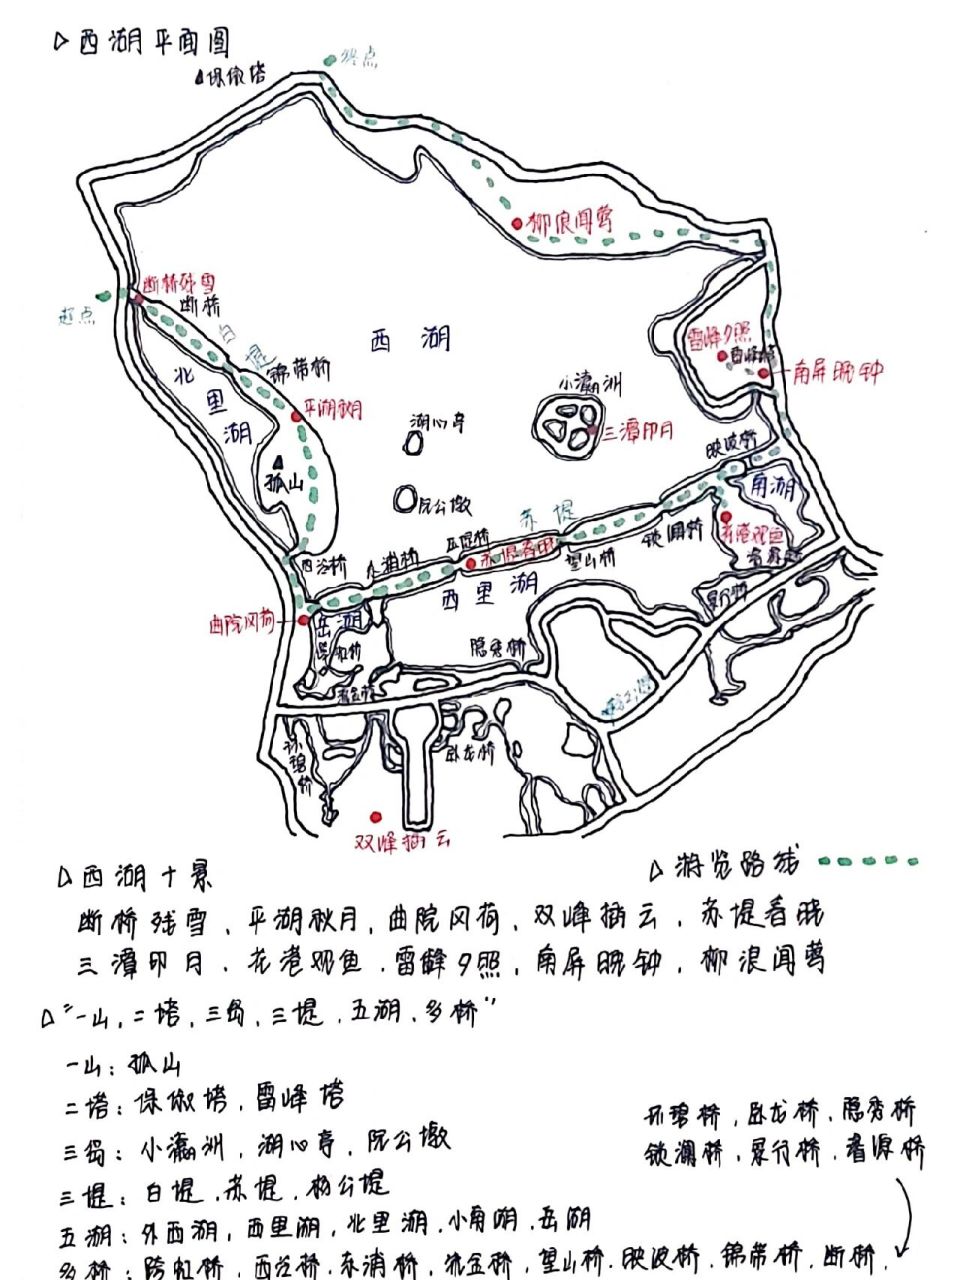 ▷西湖平面图
终点
保俶塔
柳浪闻莺
断桥残雪
断桥
起点
白堤
锦带桥
西湖
雷峰夕照
雷峰塔
南屏晚钟
北里湖
平湖秋月
小瀛洲
三潭印月
湖心亭
孤山
阮公墩
映波桥
南湖
苏堤
锁澜桥
花港观鱼
苏堤春晓
望山桥
西里湖
景行桥
曲院风荷
岳湖
隐秀桥
杨公堤
环碧桥
卧龙桥
双峰插云
▷西湖十景
▷游览路线
断桥残雪、平湖秋月、曲院风荷、双峰插云、苏堤春晓
三潭印月、花港观鱼、雷峰夕照、南屏晚钟、柳浪闻莺
▷"一山、二塔、三岛、三堤、五湖、多桥"
一山：孤山
二塔：保俶塔、雷峰塔
三岛：小瀛洲、湖心亭、阮公墩
三堤：白堤、苏堤、杨公堤
五湖：外西湖、西里湖、北里湖、小南湖、岳湖
环碧桥、卧龙桥、隐秀桥
锁澜桥、景行桥、濬源桥
多桥：跨虹桥、西泠桥、东浦桥、流金桥、望山桥、映波桥、锦带桥、断桥、